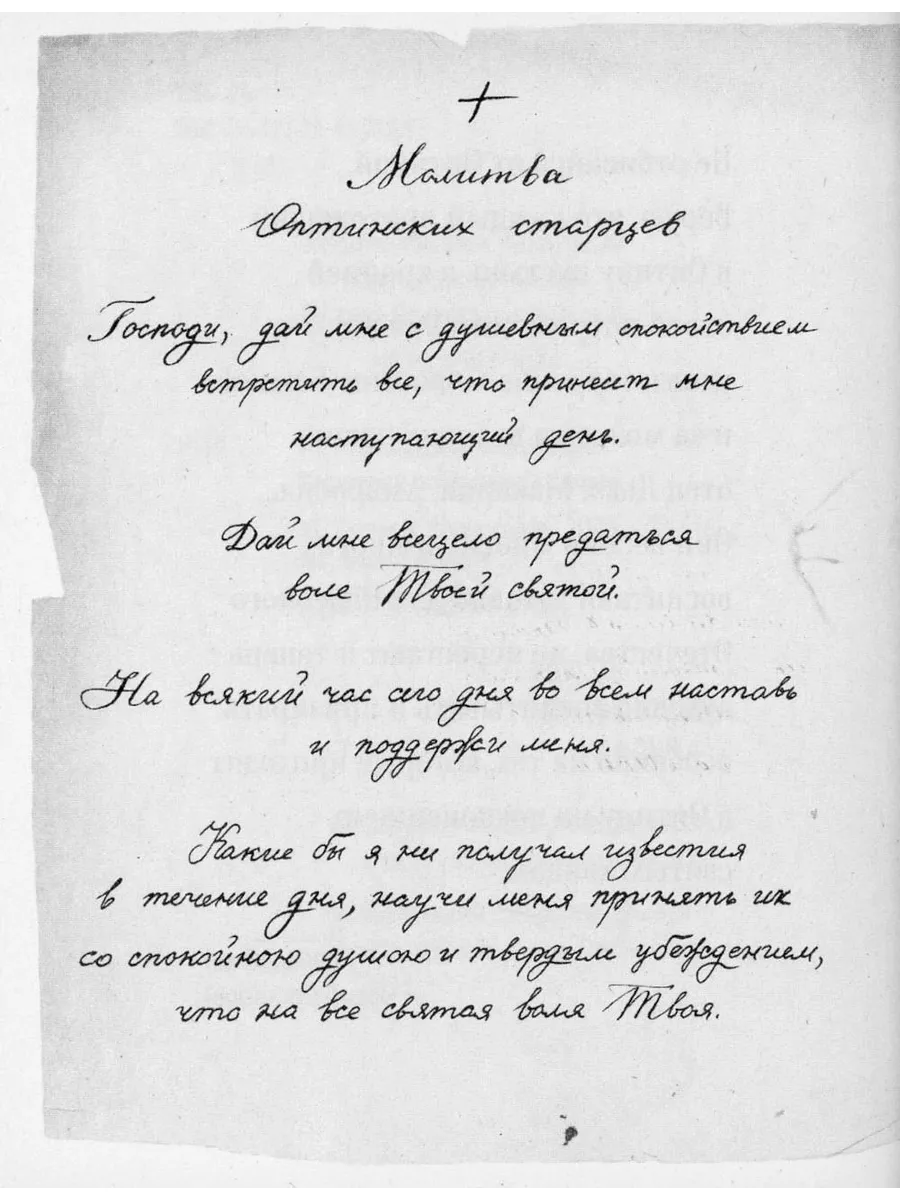 Молитва
Оптинских старцев
Господи, дай мне с душевным спокойствием
встретить все, что принесет мне
наступающий день.
Дай мне всецело предаться
воле Твоей святой.
На всякий час сего дня во всем наставь
и поддержи меня.
Какие бы я ни получал известия
в течение дня, научи меня принять их
со спокойною душою и твердым убеждением,
что на все святая воля Твоя.